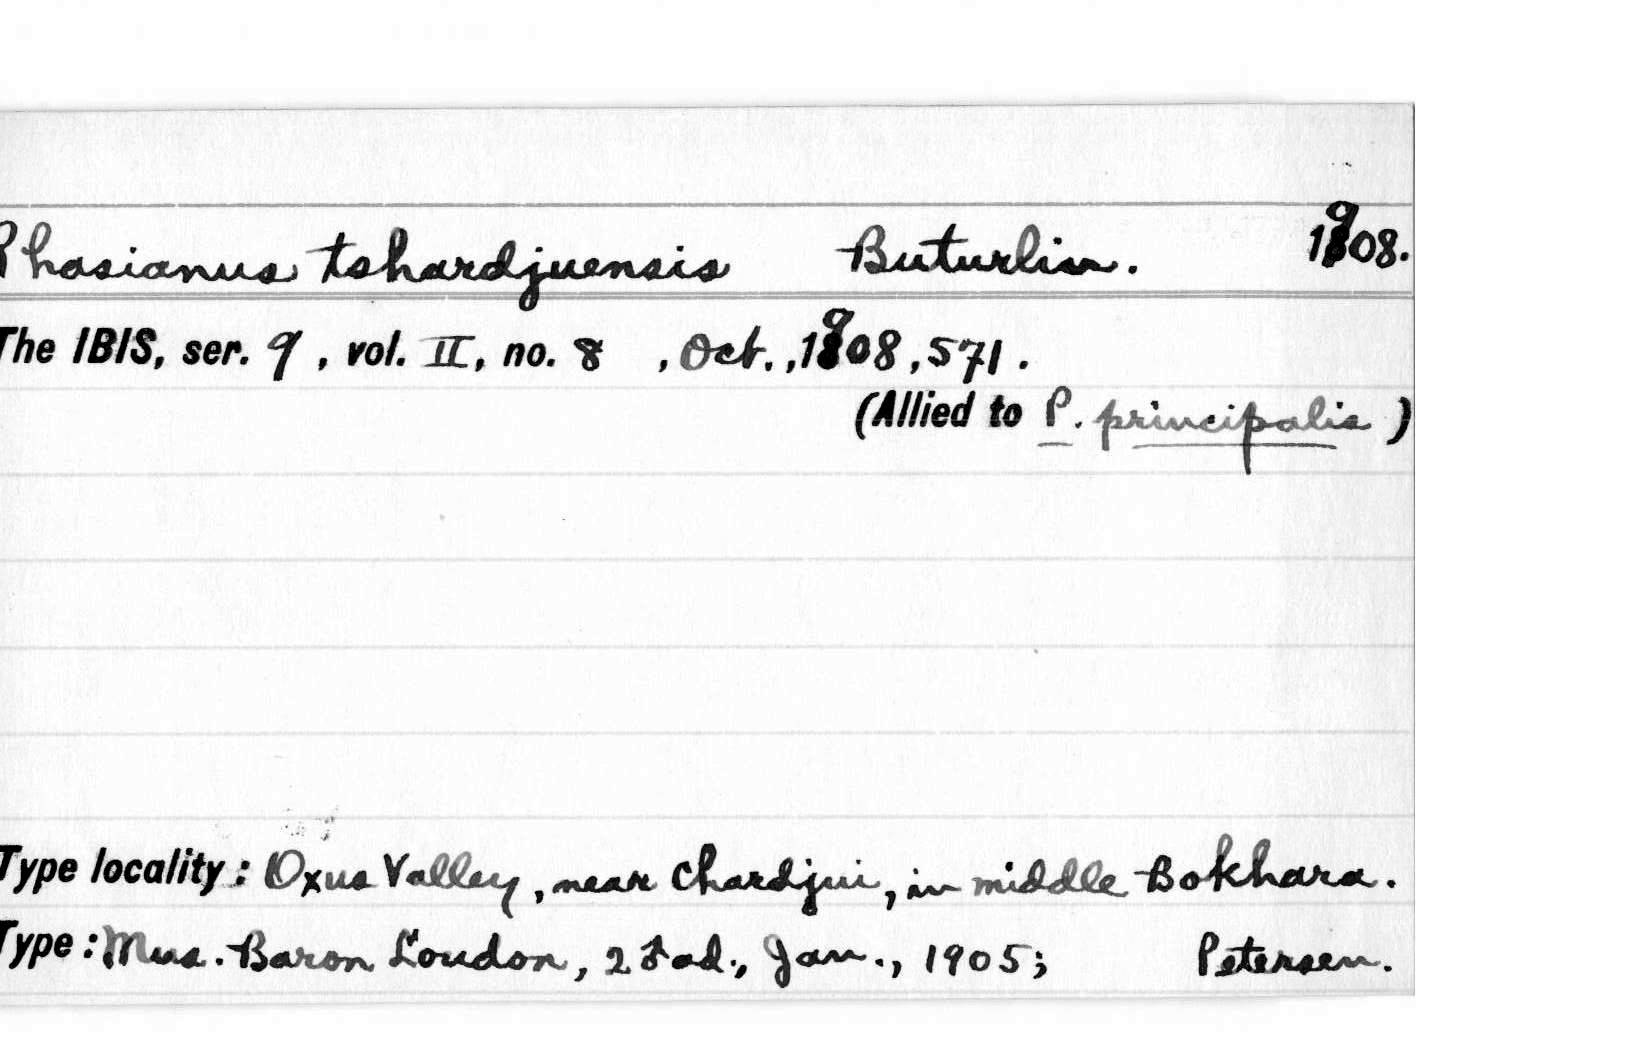 Phasianus tshardjuensis Buturlin. 1908.
The IBIS, ser. 9, vol. II, no. 8, Oct., 1908, 571.
(Allied to P. principalis)
Type locality: Oxus Valley, near Chardjui, in middle Bokhara.
Type: Mus. Baron Loudon, 2 ♂ ad., Jan., 1905; Petersen.